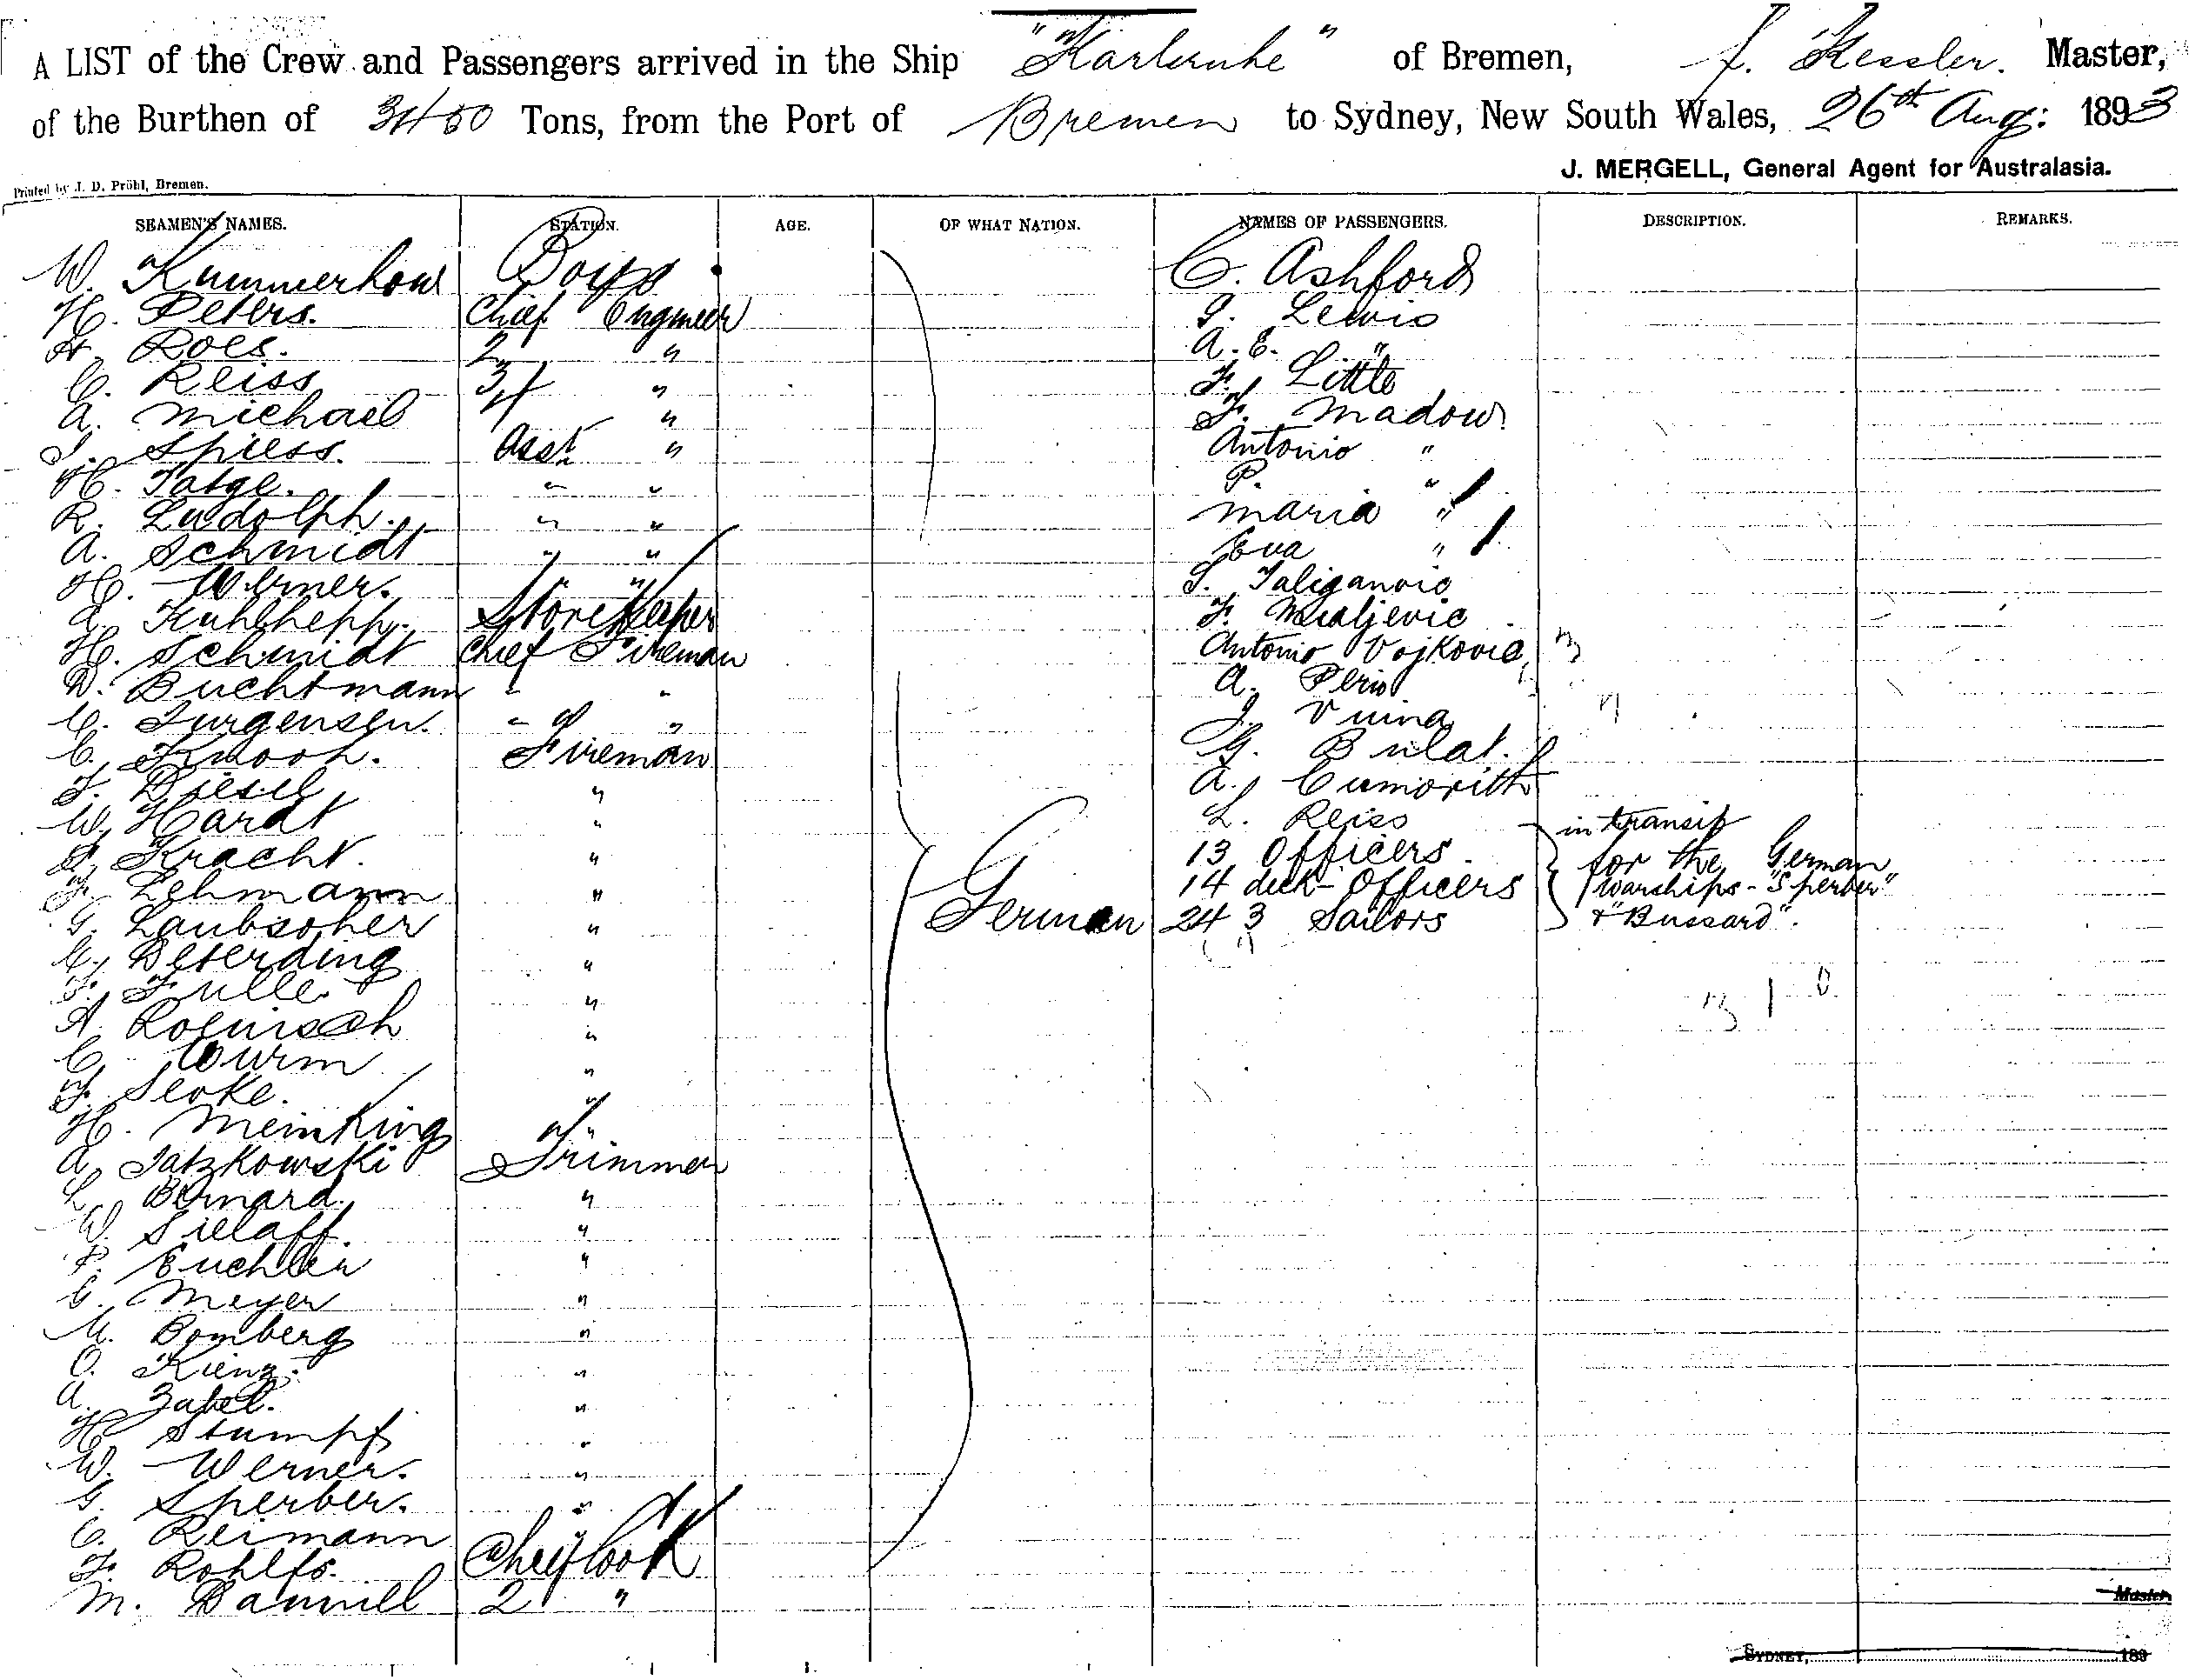 A LIST of the Crew and Passengers arrived in the Ship "Karlsruhe" of Bremen, J. Kessler. Master,
of the Burthen of 3450 Tons, from the Port of Bremen to Sydney, New South Wales, 26th Aug: 1893
J. MERGELL, General Agent for Australasia.
Printed by J. D. Pröhl, Bremen.
SEAMEN'S NAMES. STATION. AGE. OF WHAT NATION. NAMES OF PASSENGERS. DESCRIPTION. REMARKS.
W. Kummerhow Boys C. Ashford
H. Peters. Chief Engineer J. Lewis
H. Roes. 2 " A. E. "
C. Reiss 3 " F. Little
A. Michael 4 " F. Madow
J. Spiess. Asst " Antonio "
H. Tatge. " " P. "
R. Ludolph. " " Maria "
A. Schmidt " " Eva "
H. Werner. " " S. Taliganovic
Kuhlhepp. Storekeeper F. Mialjevic
H. Schmidt Chief Fireman Antonio Vojkovic
D. Buchtmann " " A. Peris
C. Jurgensen. " " J. Vuina
C. Knoop. Fireman G. Bulat.
F. Diesel " A. Cumovitt
W. Hardt " L. Reiss in transit
Kracht. " 13 Officers. for the German
F. Lehmann " 14 deck-Officers warships - "Sperber"
G. Laubscher " German 243 Sailors & "Bussard".
C. Deterding "
F. Fulle. "
A. Roenisch "
C. Wurm "
F. Seoke. "
H. Meinking "
A. Tatzkowski Trimmer
L. Bernard. "
W. Sielaff. "
P. Buchlein "
C. Meyer "
M. Bomberg "
O. Kienz. "
A. Zabel. "
H. Stumpf "
W. Werner. "
G. Sperber. "
C. Reimann "
F. Rohlfs. Chief Cook
M. Dannill 2 "
Master
SYDNEY, 189